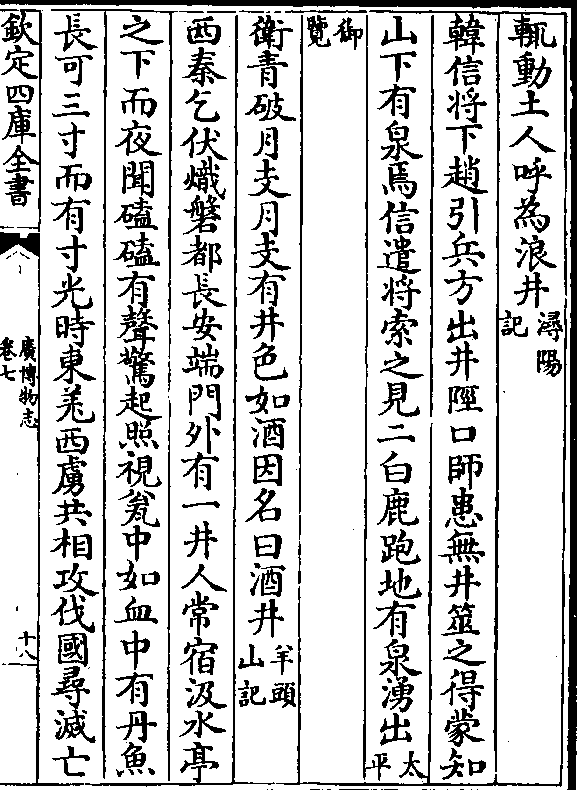 輒動土人呼為浪井潯陽記
韓信将下趙引兵方出井陘口師患無井筮之得蒙知
山下有泉焉信遣将索之見二白鹿跑地有泉湧出太平
御覽
衛青破月支月支有井色如酒因名曰酒井羊頭山記
西秦乞伏熾磐都長安端門外有一井人常宿汲水亭
之下而夜聞磕磕有聲驚起照視瓮中如血中有丹魚
長可三寸而有寸光時東羌西虜共相攻伐國尋滅亡
欽定四庫全書
廣博物志
卷七
十八